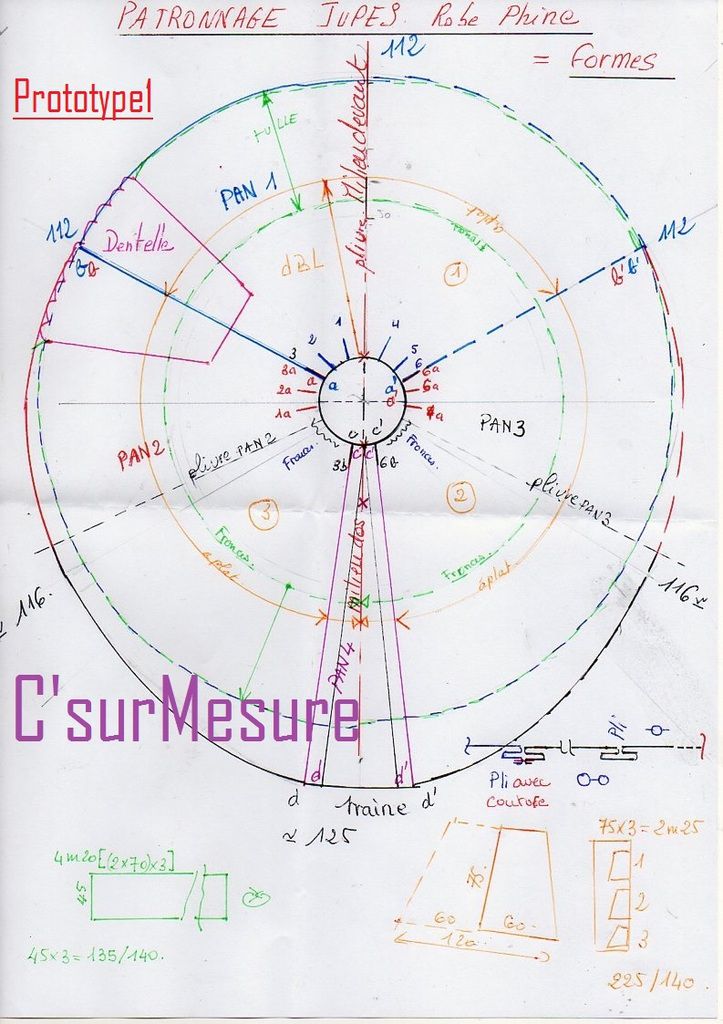 PATRONNAGE JUPES. Robe Phine
= formes
Prototype1
112
pliure Milieu devant
TULLE
PAN 1
112
Dentelle
112
30
aplat
Fronces
dBL
1
b b
b' b'
1
2
3
4
5
6
3a
2a
1a
6a
5a
4a
a
a
a'
a'
c
c'
PAN2
pliure PAN2
PAN3
pliure PAN3
Fronces.
Fronces.
3b
c
c'
6b
3
2
Fronces.
aplat
Fronces.
aplat
milieu dos
≃ 116.
116 ≃
PAN4
C'surMesure
d'
d'
d
traine
d'
≃ 125
Pli
Pli avec
couture
4m20[(2x70)x3]
45
45x3=135/140.
75.
60
60.
120.
75x3=2m25
1
2
3
225/140.